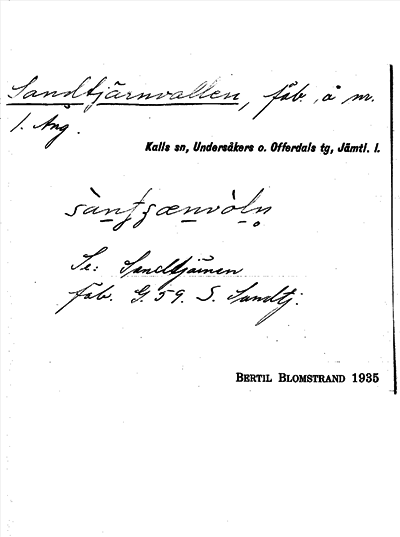 Sandtjärnvallen, fäb., å m.
l. Äng.
Kalls sn, Undersåkers o. Offerdals tg, Jämtl. l.
Se: Sandtjärnen
fäb. G 59. S. Sandtj.
BERTIL BLOMSTRAND 1935